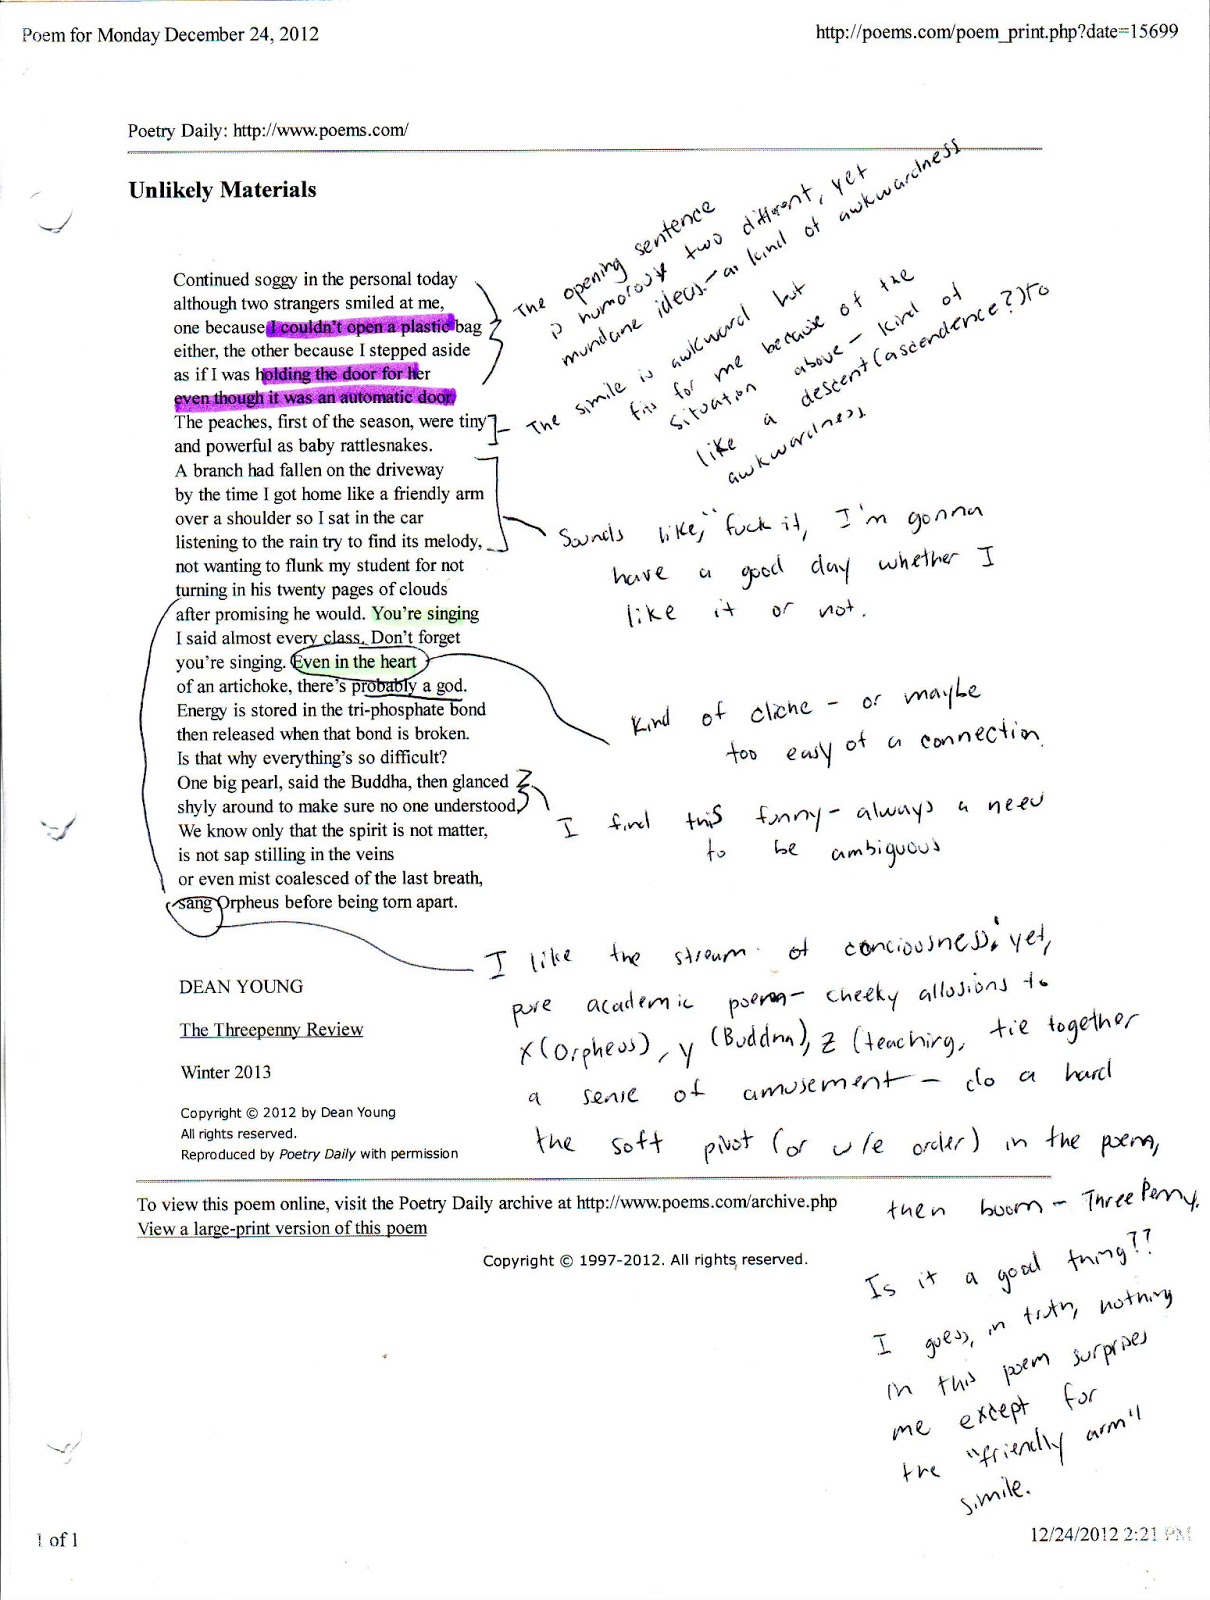 Poem for Monday December 24, 2012
http://poems.com/poem_print.php?date=15699
Poetry Daily: http://www.poems.com/
Unlikely Materials
Continued soggy in the personal today
although two strangers smiled at me,
one because I couldn't open a plastic bag
either, the other because I stepped aside
as if I was holding the door for her
even though it was an automatic door.
The peaches, first of the season, were tiny
and powerful as baby rattlesnakes.
A branch had fallen on the driveway
by the time I got home like a friendly arm
over a shoulder so I sat in the car
listening to the rain try to find its melody,
not wanting to flunk my student for not
turning in his twenty pages of clouds
after promising he would. You're singing
I said almost every class. Don't forget
you're singing. Even in the heart
of an artichoke, there's probably a god.
Energy is stored in the tri-phosphate bond
then released when that bond is broken.
Is that why everything's so difficult?
One big pearl, said the Buddha, then glanced
shyly around to make sure no one understood,
We know only that the spirit is not matter,
is not sap stilling in the veins
or even mist coalesced of the last breath,
sang Orpheus before being torn apart.
The opening sentence
is humorous two different, yet
mundane ideas - a kind of awkwardness
The simile is awkward but
fits for me because of the
situation above - kind of
like a descent (ascendence?) to
awkwardness
Sounds like, "fuck it, I'm gonna
have a good day whether I
like it or not.
Kind of cliche - or maybe
too easy of a connection.
I find this funny - always a need
to be ambiguous
I like the stream of conciousness, yet,
pure academic poem - cheeky allusions to
x (Orpheus), y (Buddha), z (teaching, tie together
a sense of amusement - do a hard
the soft pivot (or w/e order) in the poem,
then boom - ThreePenny.
Is it a good thing??
I guess, in truth, nothing
in this poem surprises
me except for
the "friendly arm"
simile.
DEAN YOUNG
The Threepenny Review
Winter 2013
Copyright © 2012 by Dean Young
All rights reserved.
Reproduced by Poetry Daily with permission
To view this poem online, visit the Poetry Daily archive at http://www.poems.com/archive.php
View a large-print version of this poem
Copyright © 1997-2012. All rights reserved.
1 of 1
12/24/2012 2:21 PM